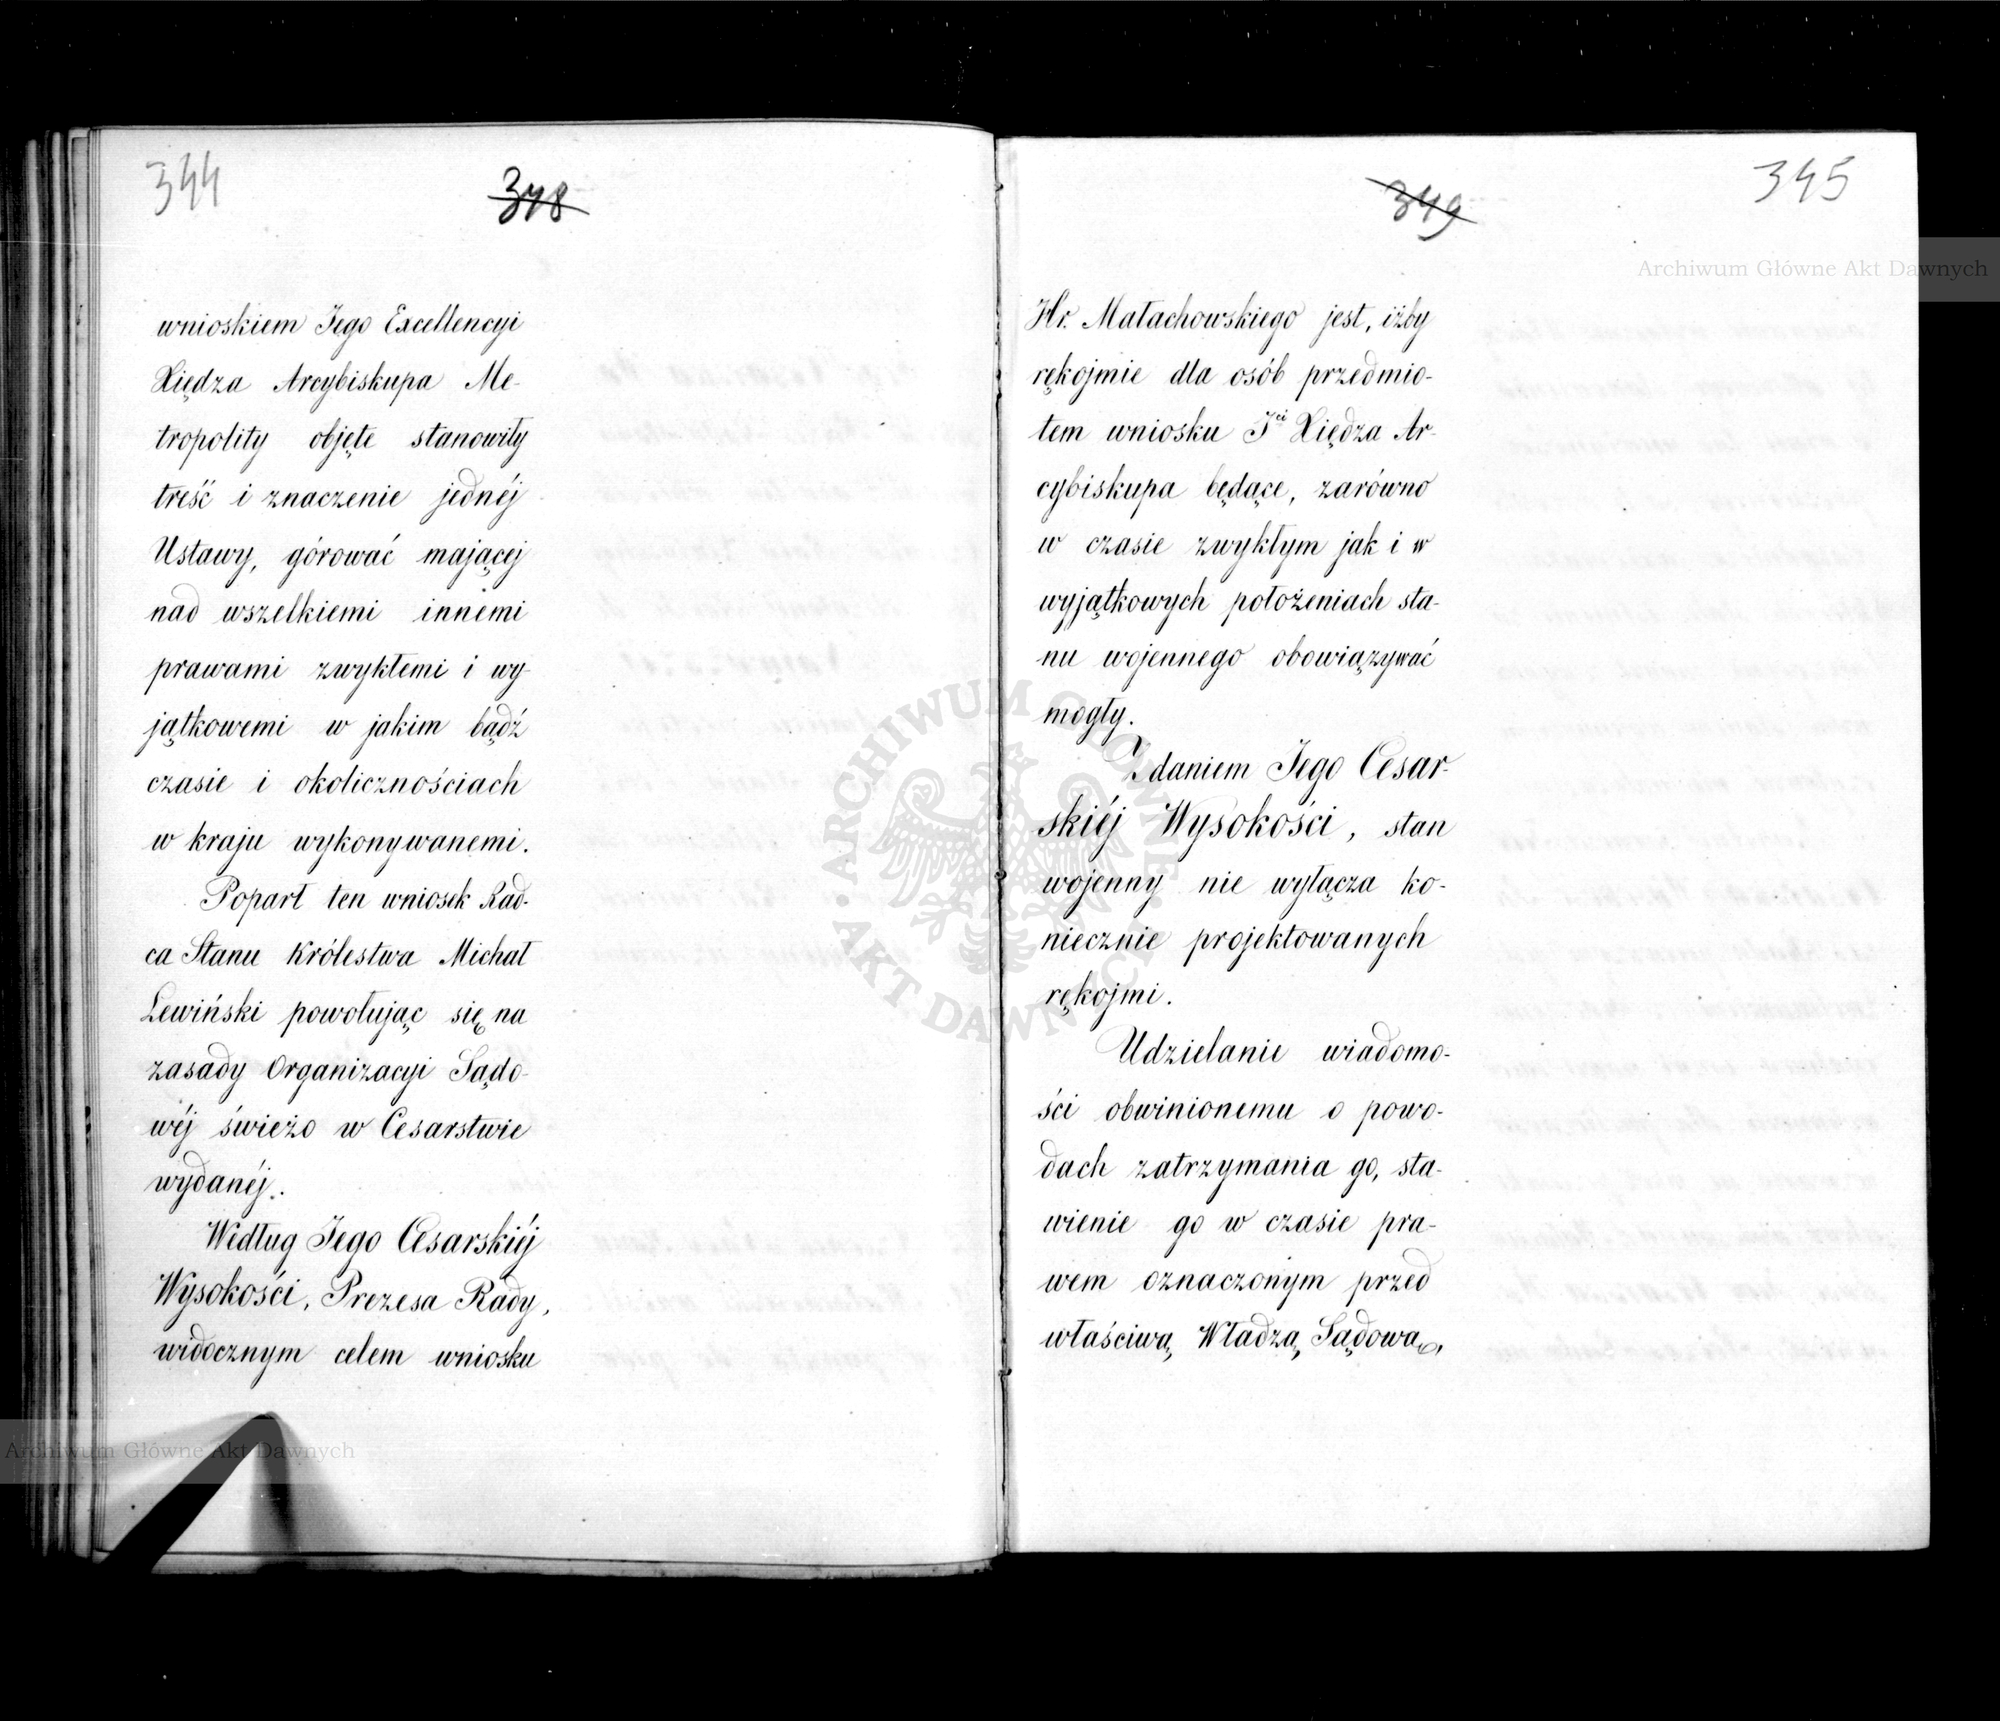 344
348
wnioskiem Jego Excellencyi
Xiędza Arcybiskupa Me-
tropolity objęte stanowiły
treść i znaczenie jednéj
Ustawy, górować mającej
nad wszelkiemi innemi
prawami zwykłemi i wy-
jątkowemi w jakim bądź
czasie i okolicznościach
w kraju wykonywanemi.
Poparł ten wniosek Rad-
ca Stanu Królestwa Michał
Lewiński powołując się na
zasady Organizacyi Sądo-
wéj świeżo w Cesarstwie
wydanéj.
Według Jego Cesarskiéj
Wysokości, Prezesa Rady,
widocznym celem wniosku
349
345
Hr. Małachowskiego jest, iżby
rękojmie dla osób przedmio-
tem wniosku Jci Xiędza Ar-
cybiskupa będące, zarówno
w czasie zwykłym jak i w
wyjątkowych położeniach sta-
nu wojennego obowiązywać
mogły.
Zdaniem Jego Cesar-
skiéj Wysokości, stan
wojenny nie wyłącza ko-
niecznie projektowanych
rękojmi.
Udzielanie wiadomo-
ści obwinionemu o powo-
dach zatrzymania go, sta-
wienie go w czasie pra-
wem oznaczonym przed
właściwą Władzą Sądową,
Archiwum Główne Akt Dawnych
ARCHIWUM GŁÓWNE AKT DAWNYCH
Archiwum Główne Akt Dawnych